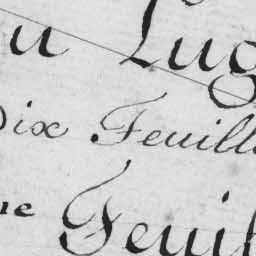 u Lug
Dix Feuill
ne Feuil